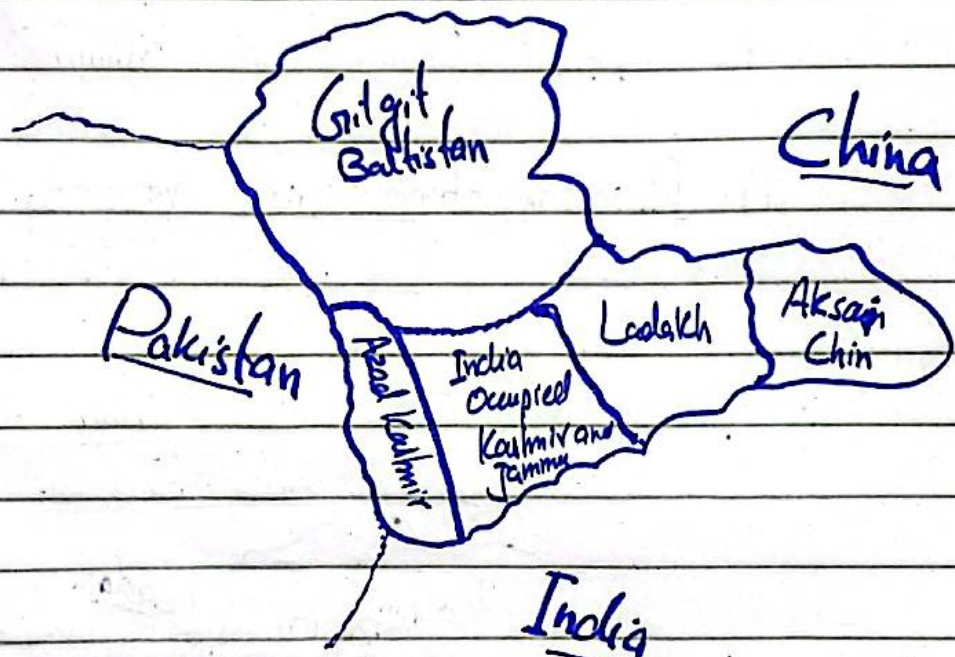 Gilgit
Baltistan
China
Pakistan
Azad Kashmir
India
Occupied
Kashmir and
Jammu
Ladakh
Aksain
Chin
India